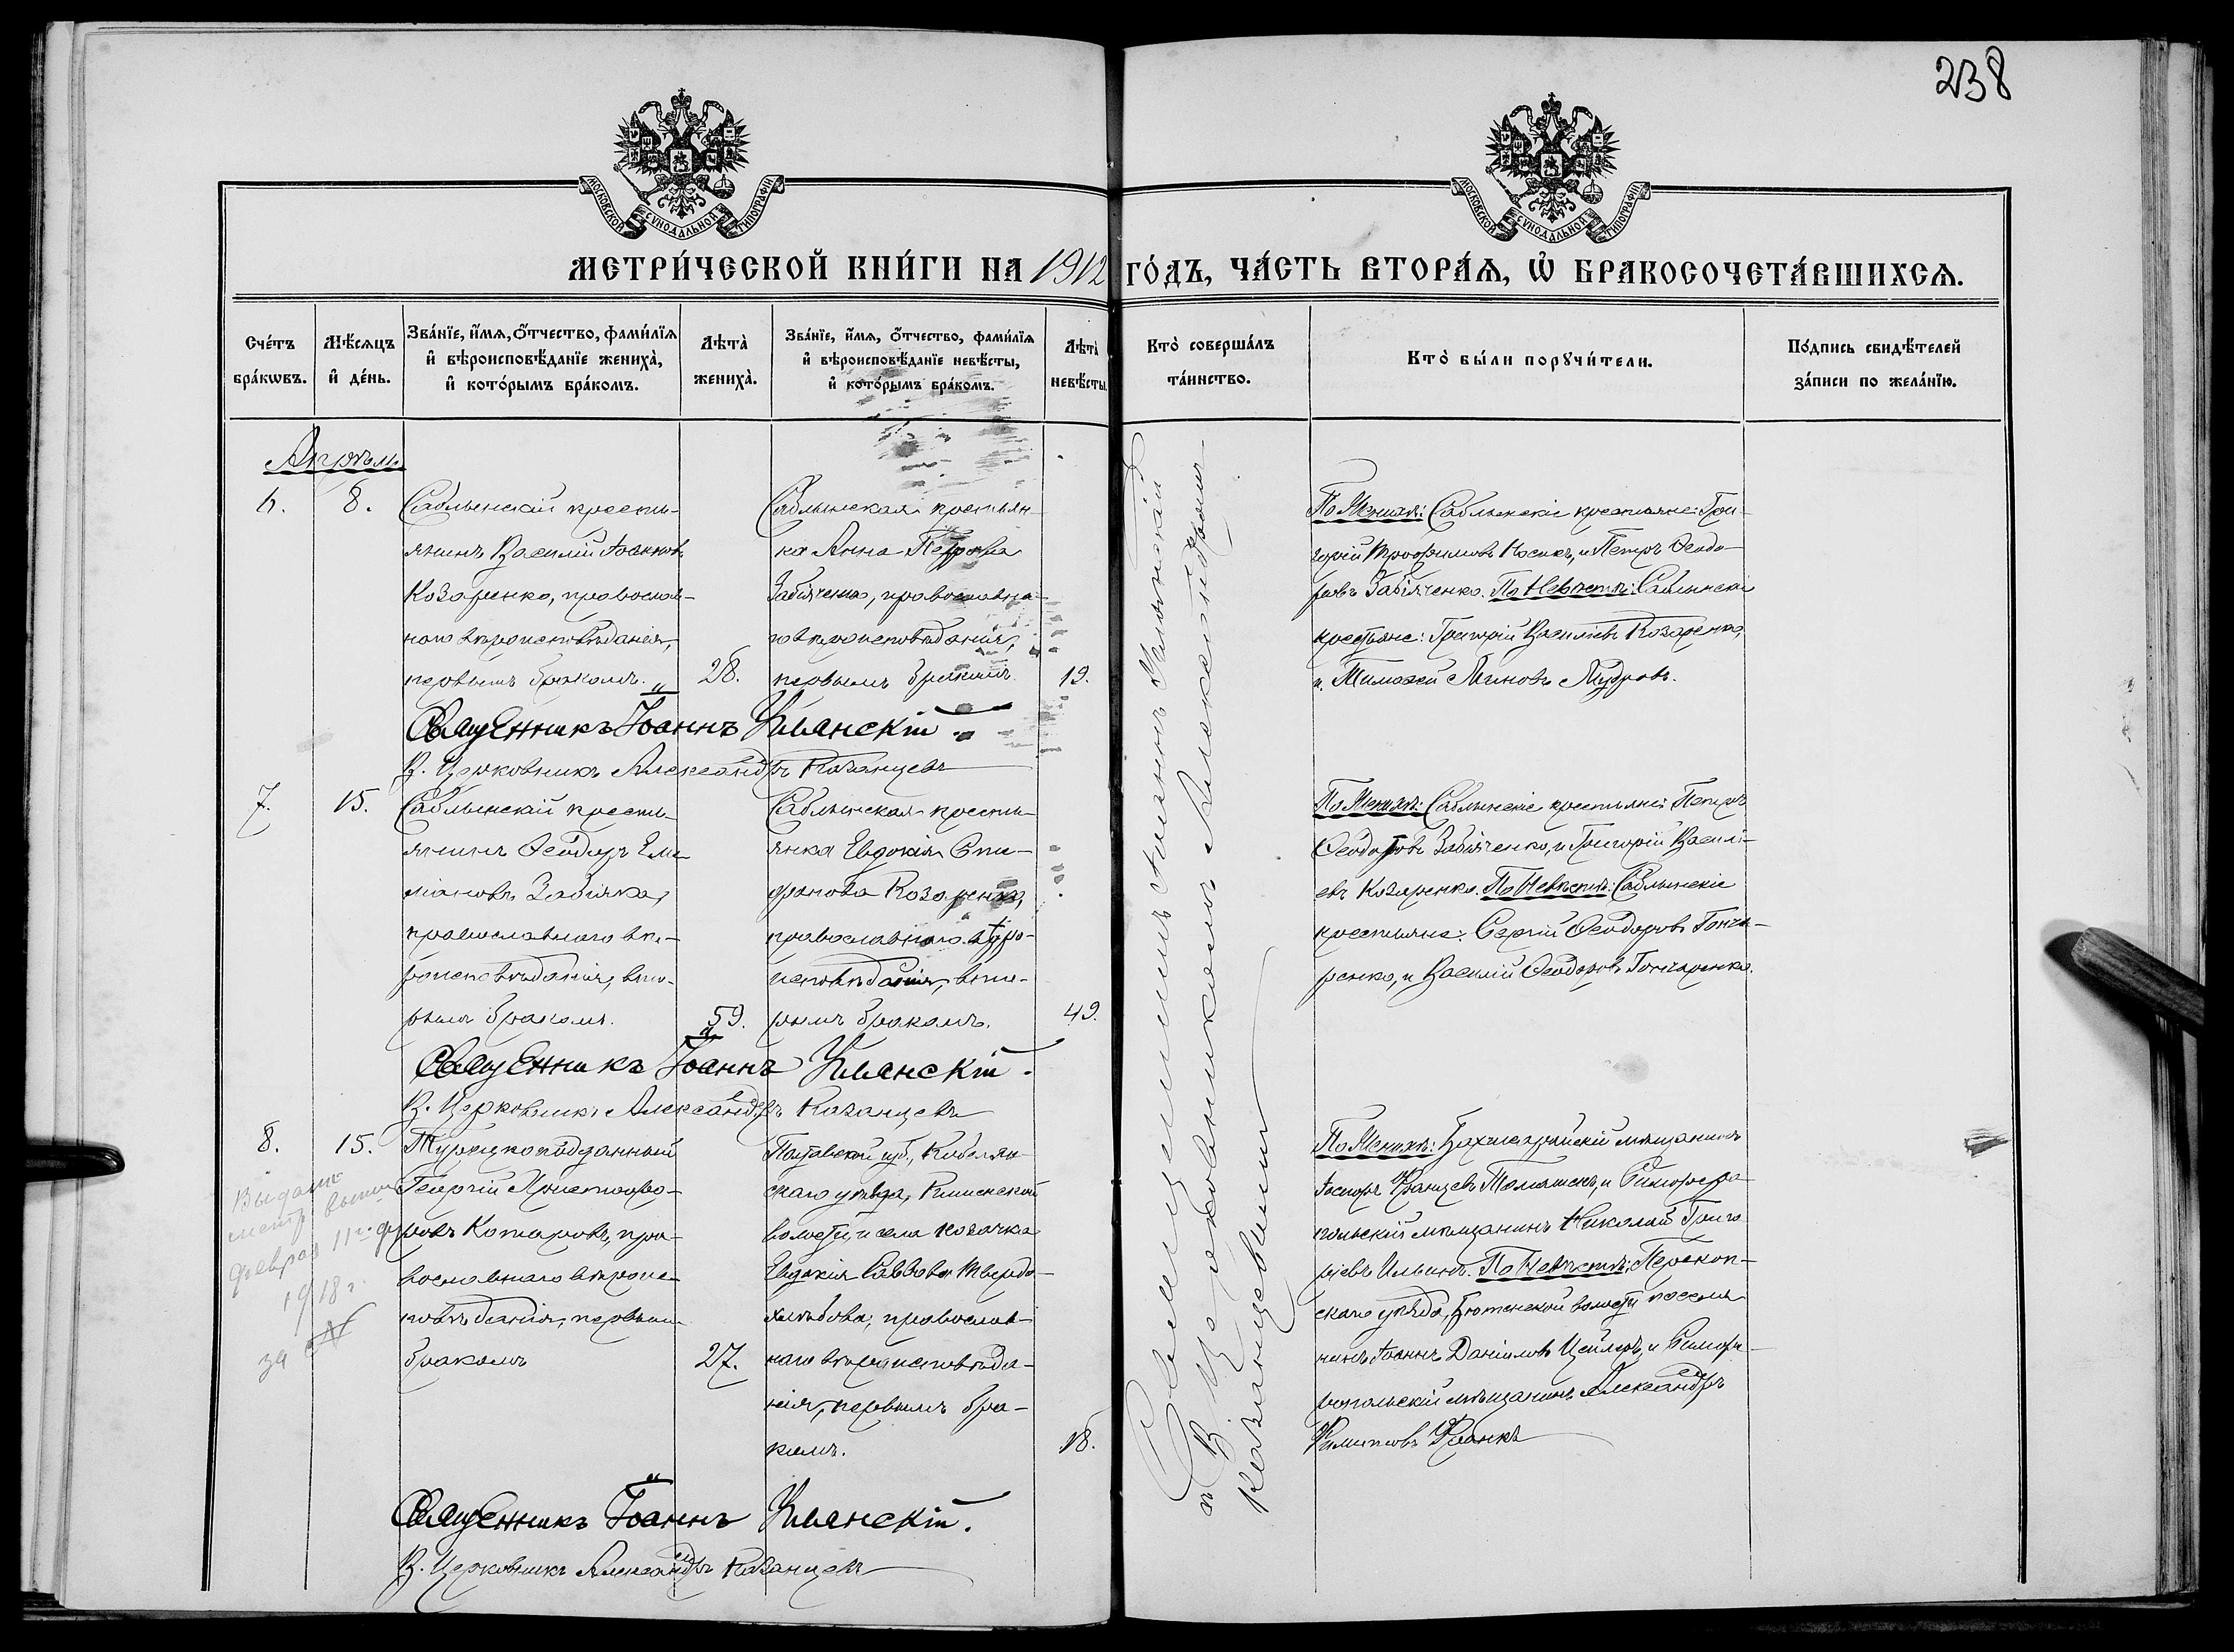 238
МОСКОВСКОЙ СѴНОДАЛЬНОЙ ТИПОГРАФІИ
МОСКОВСКОЙ СѴНОДАЛЬНОЙ ТИПОГРАФІИ
МЕТРИ́ЧЕСКОЙ КНИ́ГИ НА 1912 ГО́ДЪ, ЧА́СТЬ ВТОРА́Ѧ, Ѡ҆ БРАКОСОЧЕТА́ВШИХСѦ.
Сче́тъ бра́кѡвъ.
Мѣ́сяцъ и҆ де́нь.
Зва́нїе, и҆́мѧ, ѻ҆́тчество, фами́лїѧ и҆ вѣроисповѣ́данїе жениха̀, и҆ кото́рымъ бра́комъ.
Лѣта̀ жениха̀.
Зва́нїе, и҆́мѧ, ѻ҆́тчество, фами́лїѧ и҆ вѣроисповѣ́данїе невѣ́сты, и҆ кото́рымъ бра́комъ.
Лѣта̀ невѣ́сты.
Кто̀ соверша́лъ та́инство.
Кто̀ бы́ли порꙋчи́тели.
По́дпись свидѣ́телей за́писи по жела́нїю.
Апрѣль
6.
8.
Саблынскій кресть-
янинъ Василій Іоанновъ
Козаренко, православ-
наго вѣроисповѣданія,
первымъ бракомъ.
28.
Саблынская крестьян-
ка Анна Петрова
Забіяченко, православна-
го вѣроисповѣданія,
первымъ бракомъ.
19.
По Женихѣ: Саблынскіе крестьяне: Гри-
горій Трофимовъ Носикъ, и Петръ Ѳеодо-
ровъ Забіяченко. По Невѣстѣ: Саблынскіе
крестьяне: Григорій Васильевъ Козаренко,
и Тимофей Миновъ Мудровъ.
Священникъ Іоаннъ Уманскій.
В. Церковникъ Александръ Казанцевъ
7.
15.
Саблынскій кресть-
янинъ Ѳеодоръ Еме-
ліановъ Забіяка,
православнаго вѣ-
роисповѣданія, вто-
рымъ бракомъ.
59.
Саблынская кресть-
янка Евдокія Спи-
ридонова Козаренко,
православнаго вѣро-
исповѣданія, вто-
рымъ бракомъ.
49.
По Женихѣ: Саблынскіе крестьяне: Петръ
Ѳеодоровъ Забіяченко, и Григорій Василі-
евъ Козаренко. По Невѣстѣ: Саблынскіе
крестьяне: Сергій Ѳеодоровъ Гонча-
ренко, и Василій Ѳеодоровъ Гончаренко.
Священникъ Іоаннъ Уманскій.
В. Церковникъ Александръ Казанцевъ
8.
15.
Турецкоподданный
Георгій Христофо-
ровъ Комаровъ, пра-
вославнаго вѣроис-
повѣданія, первымъ
бракомъ
27.
Полтавской губ., Кобеляк-
скаго уѣзда, Кишенской
волости, и села Козачка
Евдокія Саввова Твердо-
хлѣбова, православ-
наго вѣроисповѣда-
нія, первымъ бра-
комъ.
18.
По Женихѣ: Бахчисарайскій мѣщанинъ
Іосифъ Францевъ Томашекъ, и Симферо-
польскій мѣщанинъ Николай Григо-
ріевъ Ильинъ. По Невѣстѣ: Перекоп-
скаго уѣзда, Бютенской волости поселя-
нинъ Іоаннъ Даніиловъ Цейлеръ, и Симфе-
ропольскій мѣщанинъ Александръ
Филиповъ Франкъ
Выдано
метр. выпис
феврал 11го дня
1918 г.
за №
Священникъ Іоаннъ Уманскій.
В. Церковникъ Александръ Казанцевъ
Священникъ Іоаннъ Уманскій
и В. Церковникомъ Александромъ
Казанцевымъ